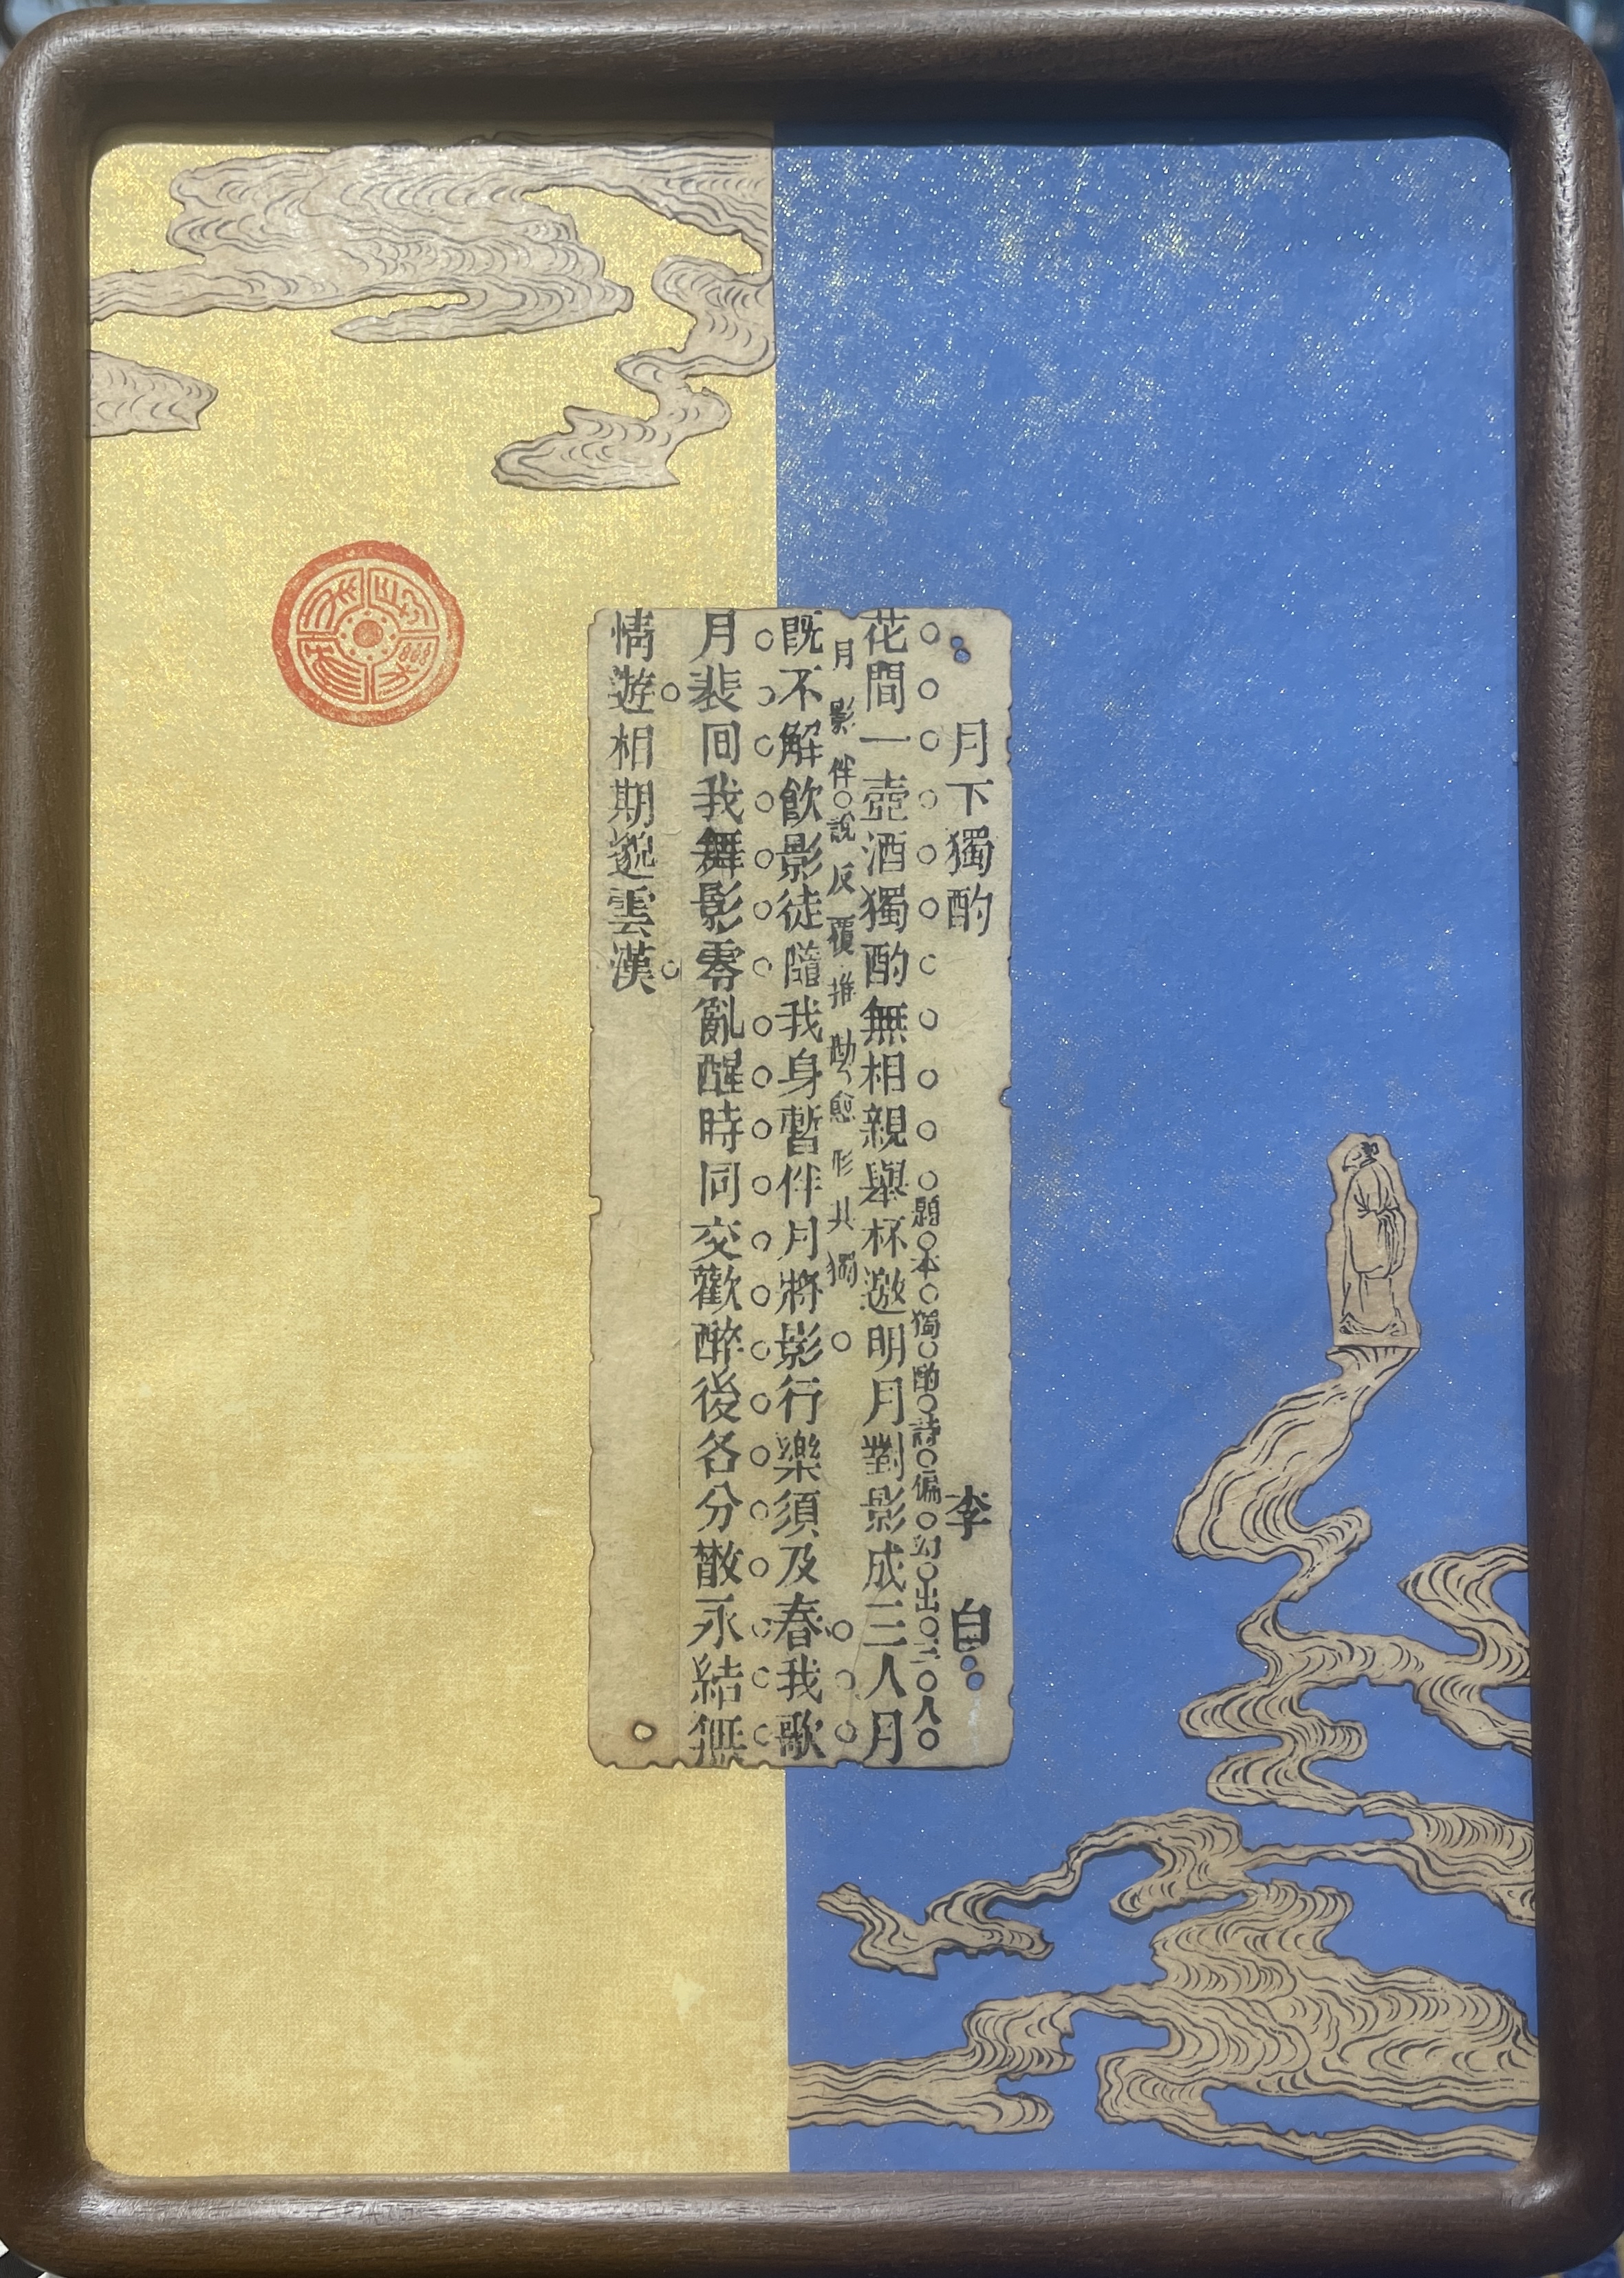 月下獨酌 李白
題本獨酌詩偏幻出三人
花間一壺酒獨酌無相親舉杯邀明月對影成三人月
月影伴說反覆推勘愈形其獨
既不解飲影徒隨我身暫伴月將影行樂須及春我歌
月裴回我舞影零亂醒時同交歡醉後各分散永結無
情遊相期邈雲漢